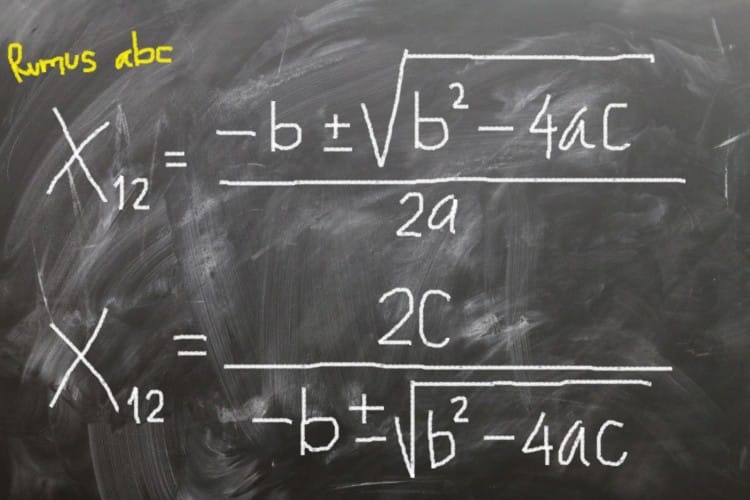 Rumus abc
X₁₂ = -b ± √b² - 4ac
2a
X₁₂ = 2C
-b ± √b² - 4ac